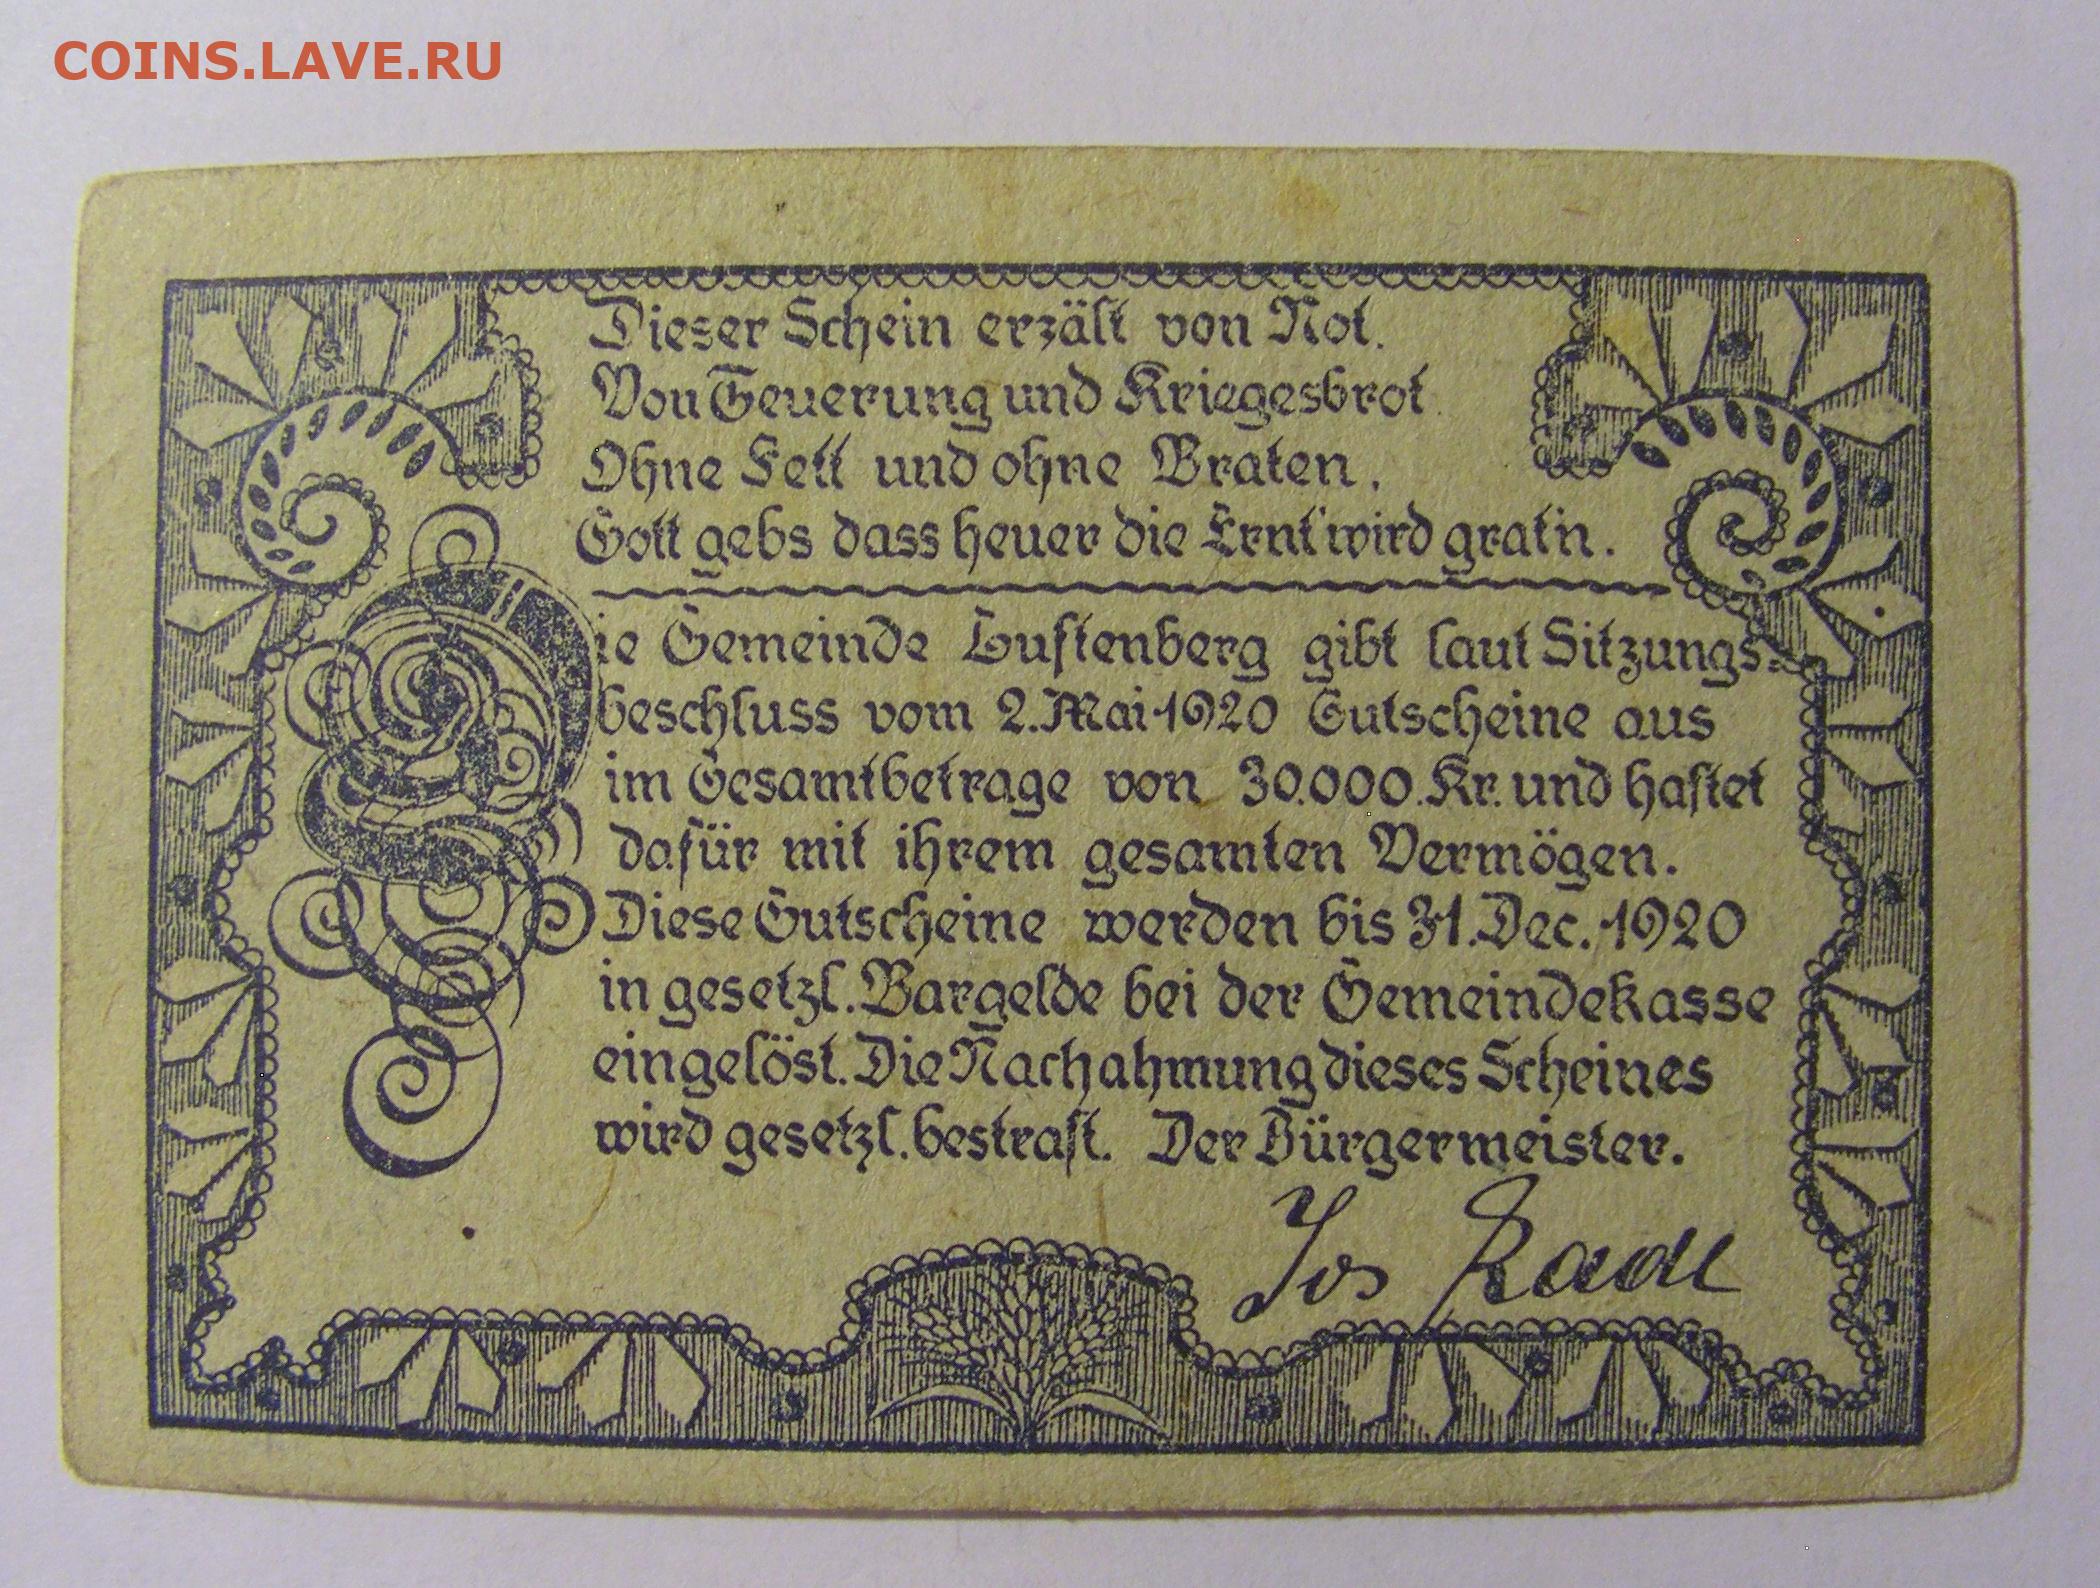 COINS.LAVE.RU
Dieser Schein erzält von Not.
Von Teuerung und Kriegesbrot
Ohne Fett und ohne Braten.
Gott gebs dass heuer die Ernt' wird grat'n.
Die Gemeinde Luftenberg gibt laut Sitzungs=
beschluss vom 2. Mai 1920 Gutscheine aus
im Gesamtbetrage von 30.000 Kr. und haftet
dafür mit ihrem gesamten Vermögen.
Diese Gutscheine werden bis 31. Dec. 1920
in gesetzl. Bargelde bei der Gemeindekasse
eingelöst. Die Nachahmung dieses Scheines
wird gesetzl. bestraft. Der Bürgermeister.
Jos Radl